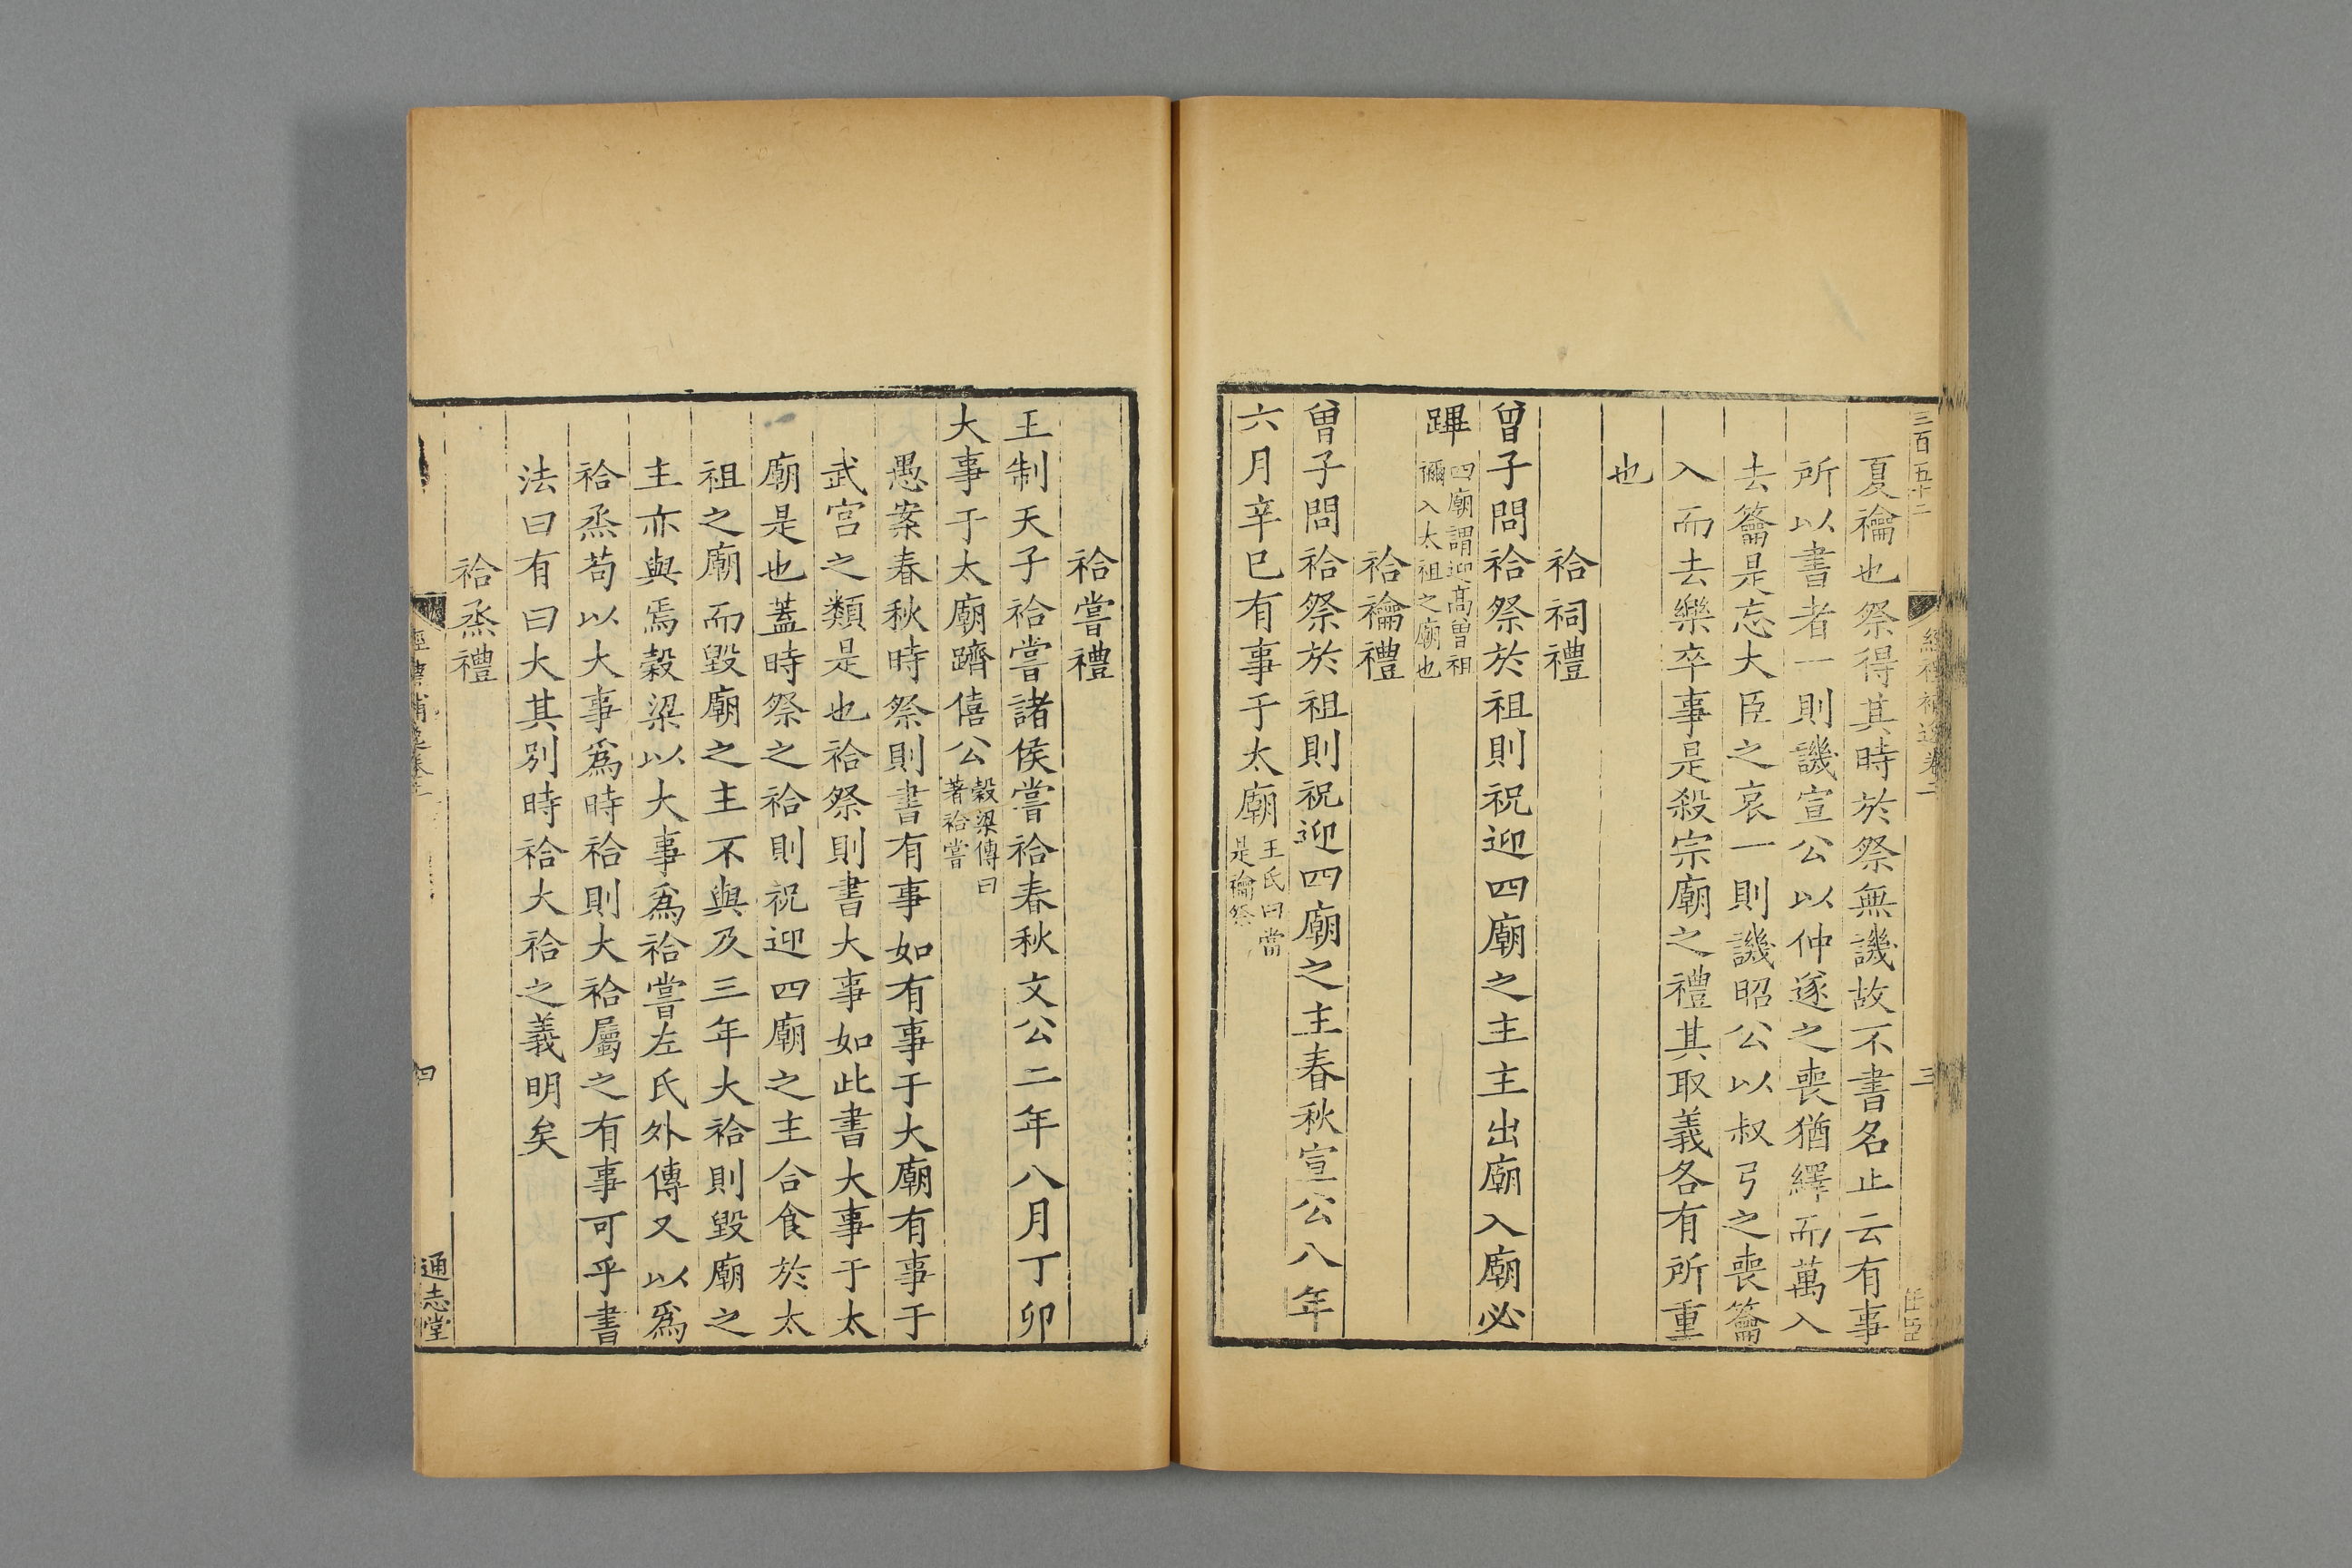 三百五十二
三
任臣
夏禴也祭得其時於祭無譏故不書名止云有事
所以書者一則譏宣公以仲遂之喪猶繹而萬入
去籥是忘大臣之哀一則譏昭公以叔弓之喪籥
入而去樂卒事是殺宗廟之禮其取義各有所重
也
祫祠禮
曾子問祫祭於祖則祝迎四廟之主主出廟入廟必
蹕四廟謂迎高曾祖
禰入太祖之廟也
祫禴禮
曾子問祫祭於祖則祝迎四廟之主春秋宣公八年
六月辛巳有事于太廟王氏曰當
是禴祭
祫嘗禮
王制天子祫嘗諸侯嘗祫春秋文公二年八月丁卯
大事于太廟躋僖公穀梁傳曰
著祫嘗
愚案春秋時祭則書有事如有事于大廟有事于
武宮之類是也祫祭則書大事如此書大事于太
廟是也蓋時祭之祫則祝迎四廟之主合食於太
祖之廟而毀廟之主不與及三年大祫則毀廟之
主亦與焉穀梁以大事為祫嘗左氏外傳又以為
祫烝苟以大事為時祫則大祫屬之有事可乎書
法曰有曰大其別時祫大祫之義明矣
祫烝禮
四
通志堂